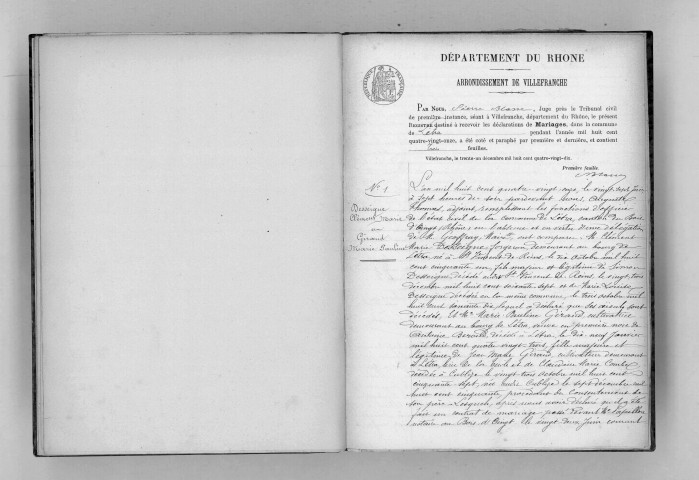 DÉPARTEMENT DU RHONE
ARRONDISSEMENT DE VILLEFRANCHE
PAR NOUS, Pierre , Juge près le Tribunal civil
de première instance, séant à Villefranche, département du Rhône, le présent
REGISTRE destiné à recevoir les déclarations de Mariages, dans la commune
de Létra pendant l'année mil huit cent
quatre-vingt-onze, a été coté et paraphé par première et dernière, et contient
feuilles.
Villefranche, le trente-un décembre mil huit cent quatre-vingt-dix.
Première feuille.
N° 1
Dessaigne
Clément Marie
et
Giraud
Marie Pauline
L'an mil huit cent quatre vingt onze, le vingt sept juin
à sept heures du soir pardevant nous,
Thomas, adjoint, remplissant les fonctions d'officier
de l'état civil de la commune de Létra, canton du Bois
d'Oingt, Rhône, en l'absence et en vertu d'une délégation
de M. Geoffray, Maire, ont comparu: M. Clément
Marie Dessaigne, forgeron, demeurant au bourg de
Létra, né à St Vincent de Reins, le dix octobre mil huit
cent cinquante un, fils majeur et légitime de
Dessaigne, décédé à dit St Vincent de Reins, le vingt trois
décembre mil huit cent soixante sept et de Marie Louise
Dessaigne décédée en la même commune, le trois octobre mil
huit cent soixante dix, lequel a déclaré que ses aïeuls sont
décédés. Et Me Marie Pauline Giraud, cultivatrice
demeurant au bourg de Létra, veuve en premières noces de
Antoine , décédé à Létra, le dix neuf janvier
mil huit cent quatre vingt trois, fille majeure et
légitime de Jean Marie Giraud, cultivateur demeurant
à Létra, et de Claudine Marie
décédée à Cublize le vingt trois octobre mil huit cent
cinquante sept, née audit Cublize le sept décembre mil
huit cent cinquante, procédant du consentement de
son père. Lesquels, après nous avoir déclaré qu'il a été
fait un contrat de mariage passé devant Me Papillon
notaire au Bois d'Oingt le vingt deux juin courant